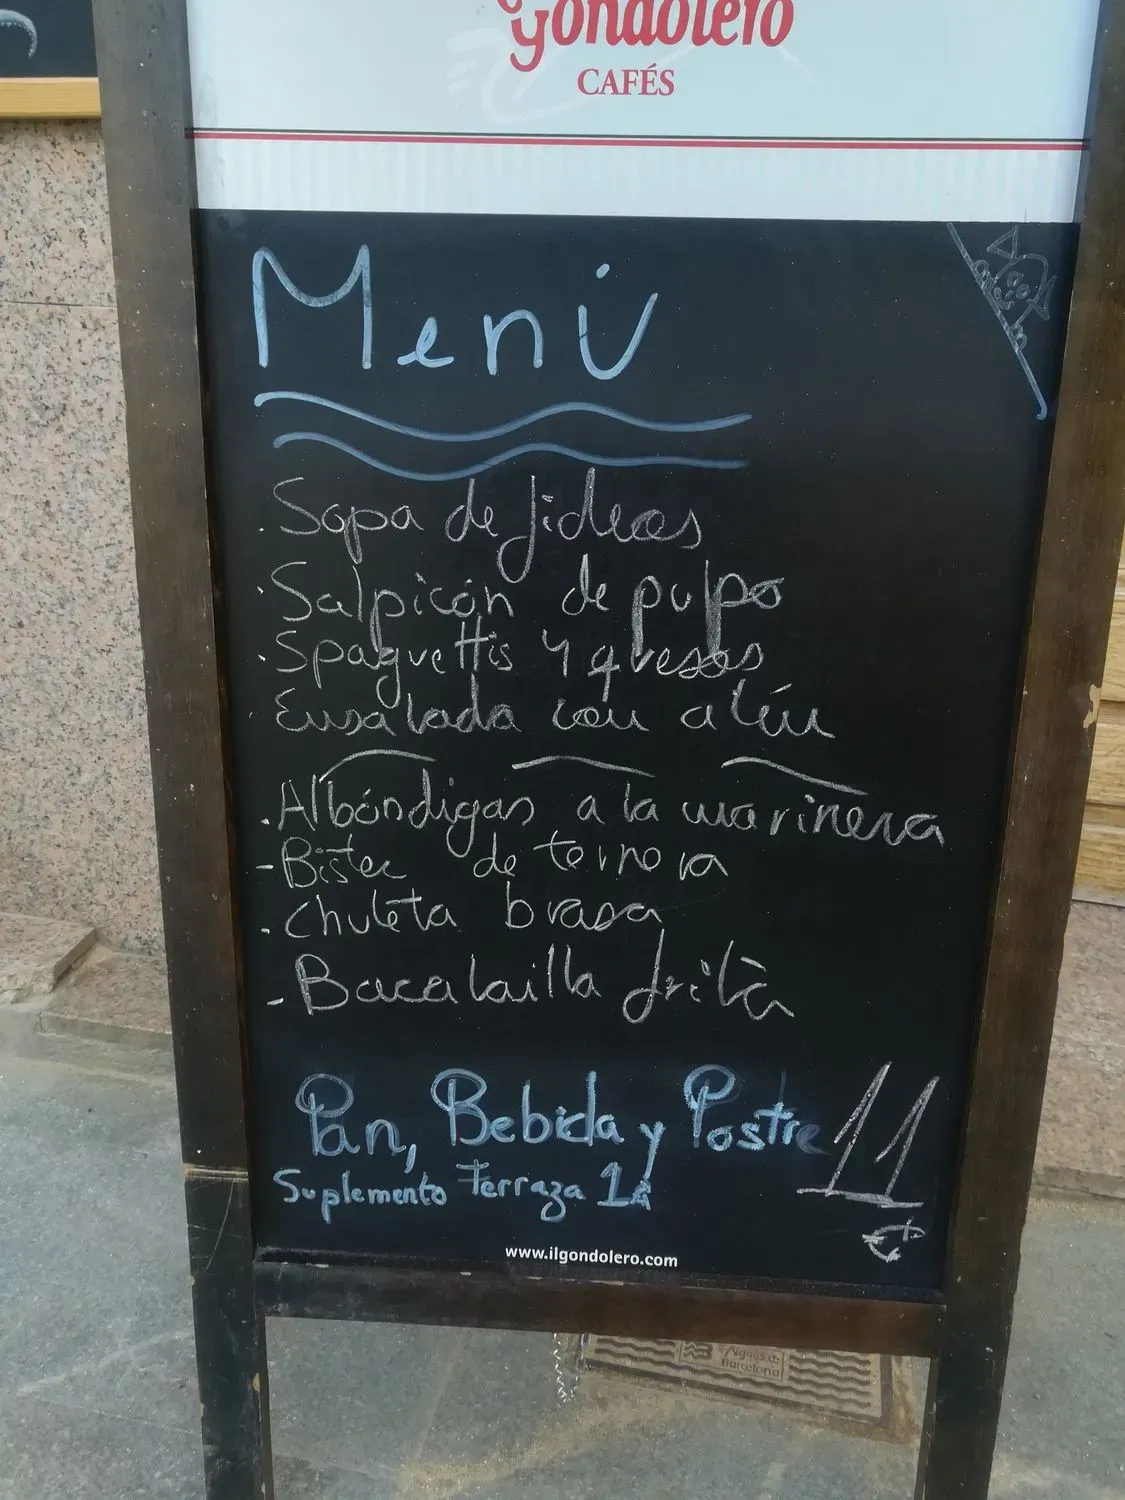 Gondolero
CAFÉS
Menú
· Sopa de fideos
· Salpicón de pulpo
· Spaguettis 4 quesos
· Ensalada con atún
· Albóndigas a la marinera
- Bistec de ternera
· Chuleta brasa
- Bacalailla frita
Pan, Bebida y Postre 11
Suplemento Terraza 1
€
www.ilgondolero.com
Aigües de
Barcelona